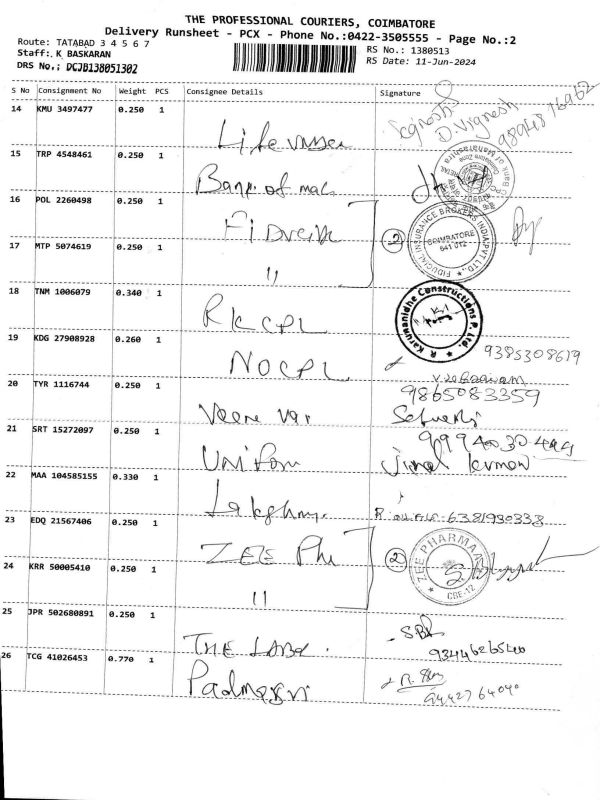 THE PROFESSIONAL COURIERS, COIMBATORE
Delivery Runsheet - PCX - Phone No.:0422-3505555 - Page No.:2
Route: TATABAD 3 4 5 6 7
RS No.: 1380513
Staff:. K BASKARAN
RS Date: 11-Jun-2024
DRS No.; DCJB138051302
S No Consignment No Weight PCS Consignee Details Signature
14 KMU 3497477 0.250 1
D. Vignesh
15 TRP 4548461 0.250 1 Bank of mac
Bank of Maharashtra
16 POL 2260498 0.250 1
17 MTP 5074619 0.250 1 "
2
FIDUCIAL INSURANCE BROKERS INDIA PVT LTD.,
COIMBATORE
641 012
18 TNM 1006079 0.340 1 RKCPL
R Karunanidhe Constructions P. Ltd.
19 KDG 27908928 0.260 1 NOCPL
9385308619
20 TYR 1116744 0.250 1 Veere Var
9865083359
21 SRT 15272097 0.250 1 Uniform
Jimal kumar
22 MAA 104585155 0.330 1 Lakshmy
6381930338
23 EDQ 21567406 0.250 1 ZEE Ph
2
ZEE PHARMA
CBE-12
24 KRR 50005410 0.250 1 "
25 JPR 502680891 0.250 1 THE LABEL
SBR
9344626540
26 TCG 41026453 0.770 1
9442764040